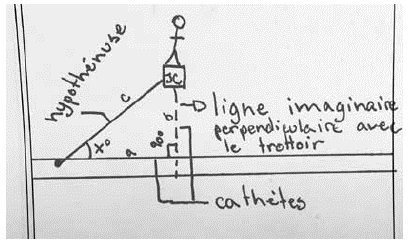 hypothénuse
c
ligne imaginaire
perpendiculaire avec
le trottoir
b
90°
x°
a
cathètes